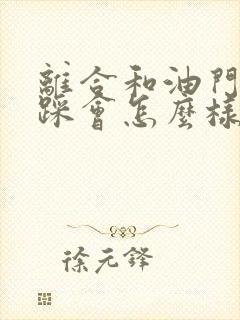 離合和油門
踩會怎麼樣
徐元鋒